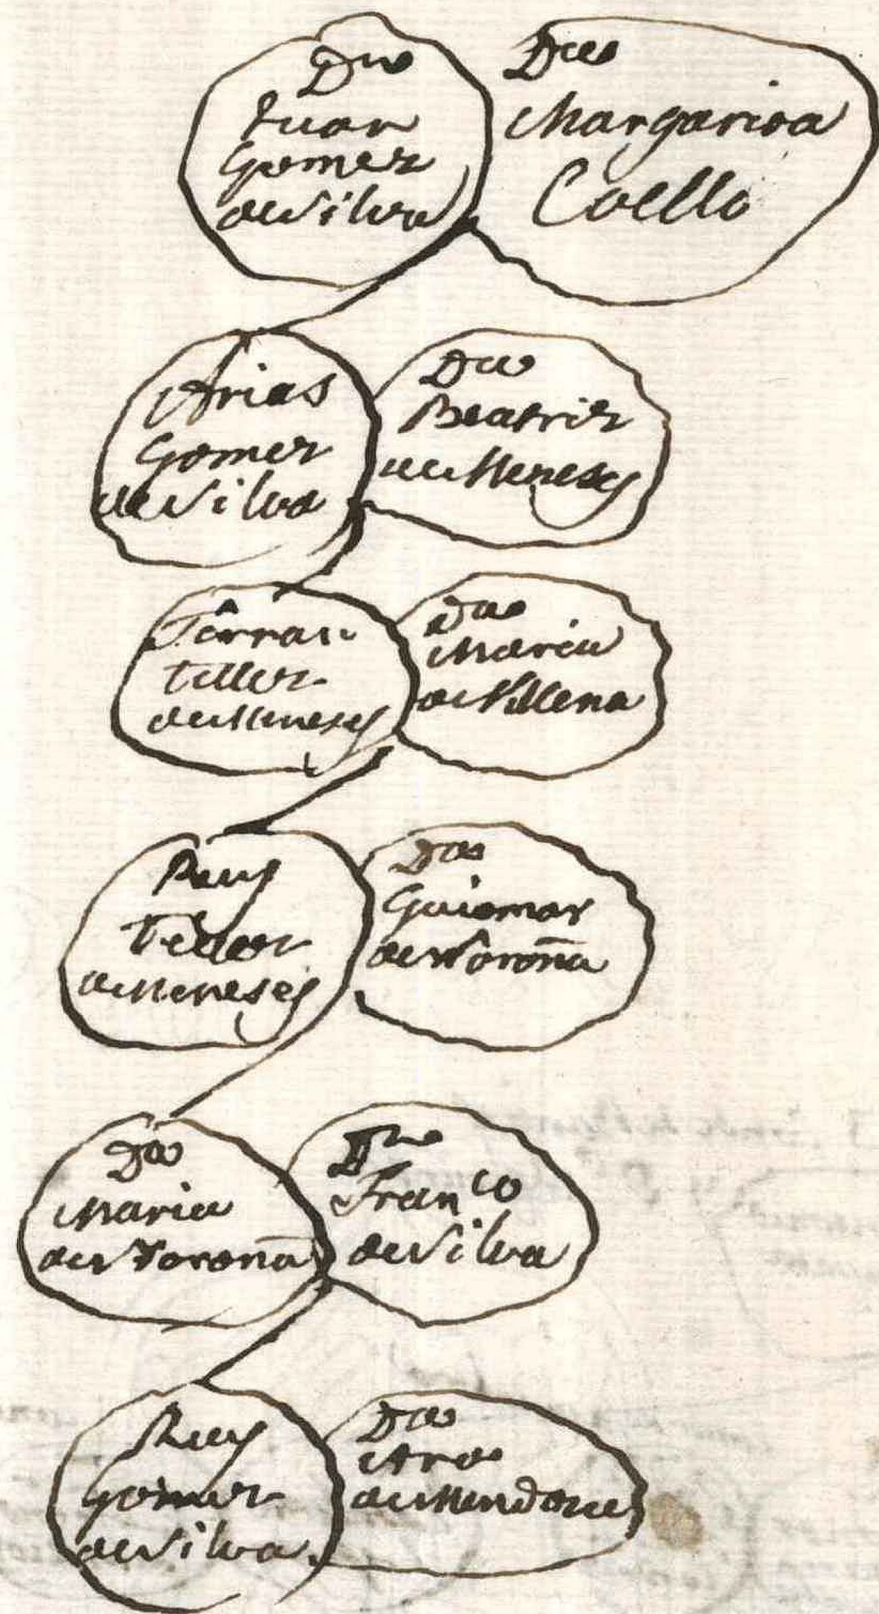 Dn
Juan
Gomez
de Silva
Da
Margarita
Coello
Arias
Gomez
de Silva
Da
Beatriz
de Meneses
Fernan
Tellez
de Meneses
Da
Maria
de Villena
Ruy
Tellez
de Meneses
Da
Guiomar
de Noroña
Da
Maria
de Noroña
Dn
Franco
de Silva
Ruy
Gomez
de Silva.
Da
Ana
de Mendoza